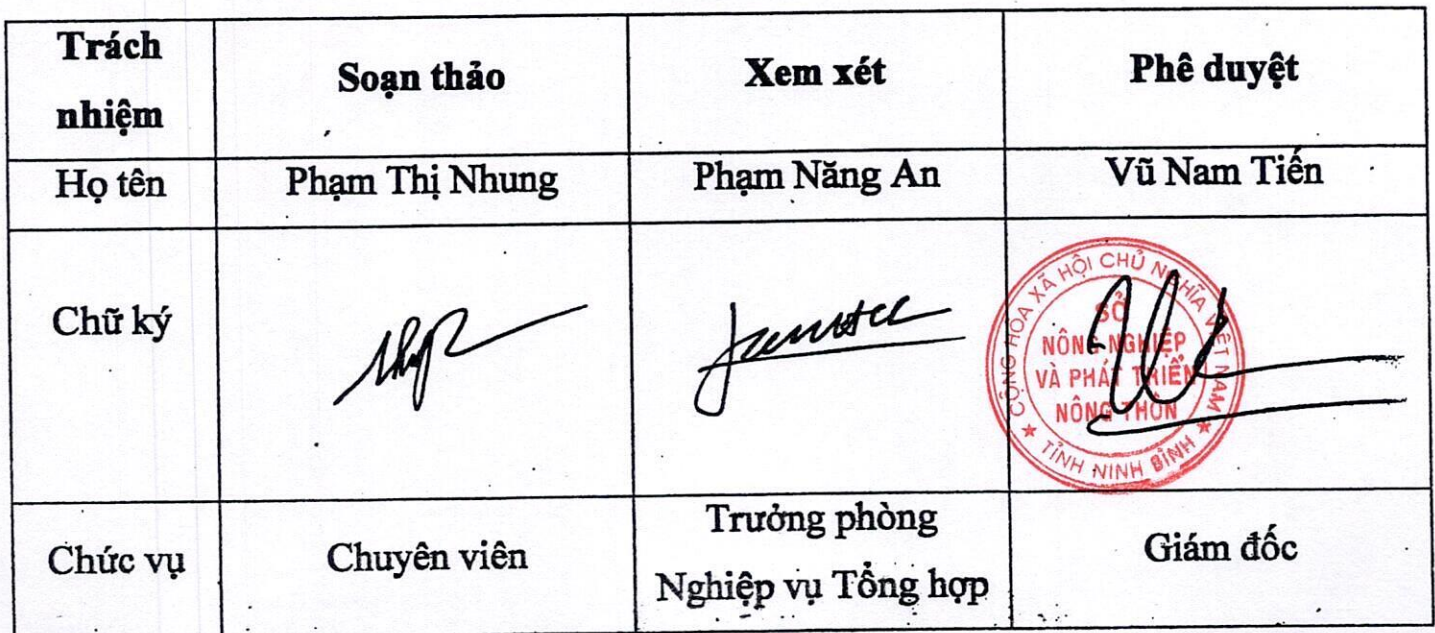 Trách nhiệm
Soạn thảo
Xem xét
Phê duyệt
Họ tên
Phạm Thị Nhung
Phạm Năng An
Vũ Nam Tiến
Chữ ký
CỘNG HÒA XÃ HỘI CHỦ NGHĨA VIỆT NAM
SỞ
NÔNG NGHIỆP
VÀ PHÁT TRIỂN
NÔNG THÔN
TỈNH NINH BÌNH
Chức vụ
Chuyên viên
Trưởng phòng
Nghiệp vụ Tổng hợp
Giám đốc